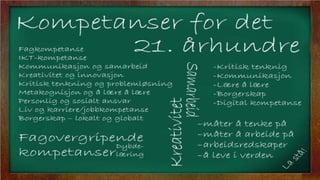 Kompetanser for det
21. århundre
Fagkompetanse
IKT-kompetanse
Kommunikasjon og samarbeid
Kreativitet og innovasjon
Kritisk tenkning og problemløsning
Metakognisjon og å lære å lære
Personlig og sosialt ansvar
Liv og karriere/jobbkompetanse
Borgerskap – lokalt og globalt
Fagovergripende
kompetanser
Dybde-
læring
Kreativitet
Samarbeid
-Kritisk tenknig
-Kommunikasjon
-Lære å lære
-Borgerskap
-Digital kompetanse
-måter å tenke på
-måter å arbeide på
-arbeidsredskaper
-å leve i verden
La stå!